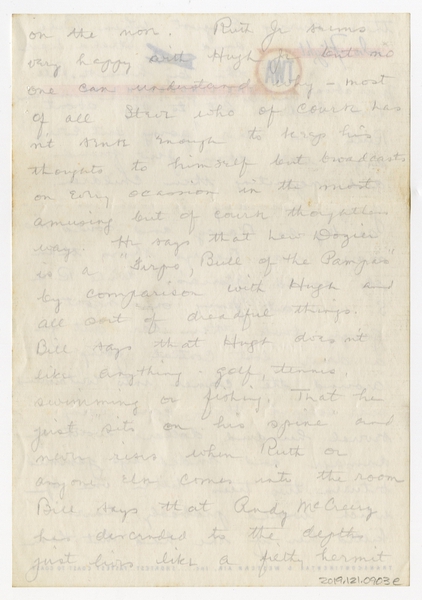 on the mon. Ruth Jr seems
very happy with Hugh Jr but no
one can understand why - most
of all Steve who of course has
n't sense enough to keep his
thoughts to himself but broadcasts
on every occasion in the most
amusing but of course thoughtless
way. He says that Lew Dozier
is a "Firpo, Bull of the Pampas"
by comparison with Hugh and
all sort of dreadful things.
Bill says that Hugh doesn't
like anything - golf, tennis,
swimming or fishing. That he
just sits on his spine and
never rises when Ruth or
anyone else comes into the room
Bill says that Andy McCreery
has descended to the depths
just lives like a filthy hermit
2019.121.0903e